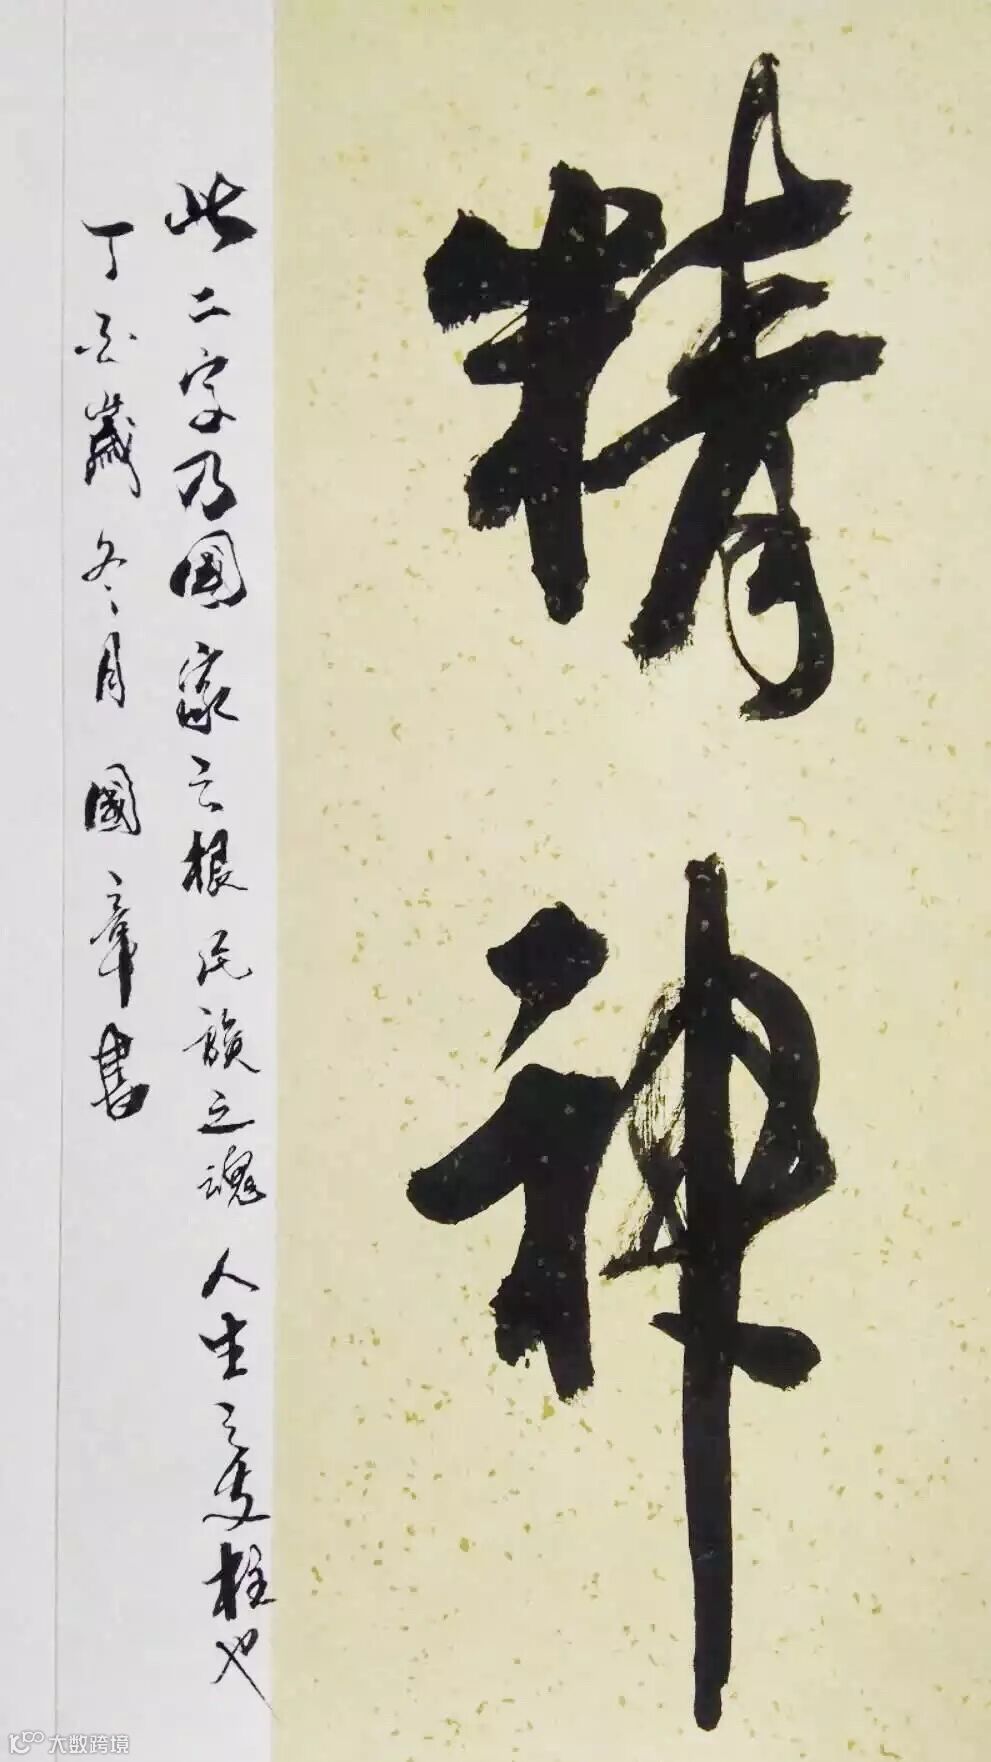 精神
此二字乃國家之根民族之魂人生之支柱也
丁酉歲冬月國章書
大数跨境